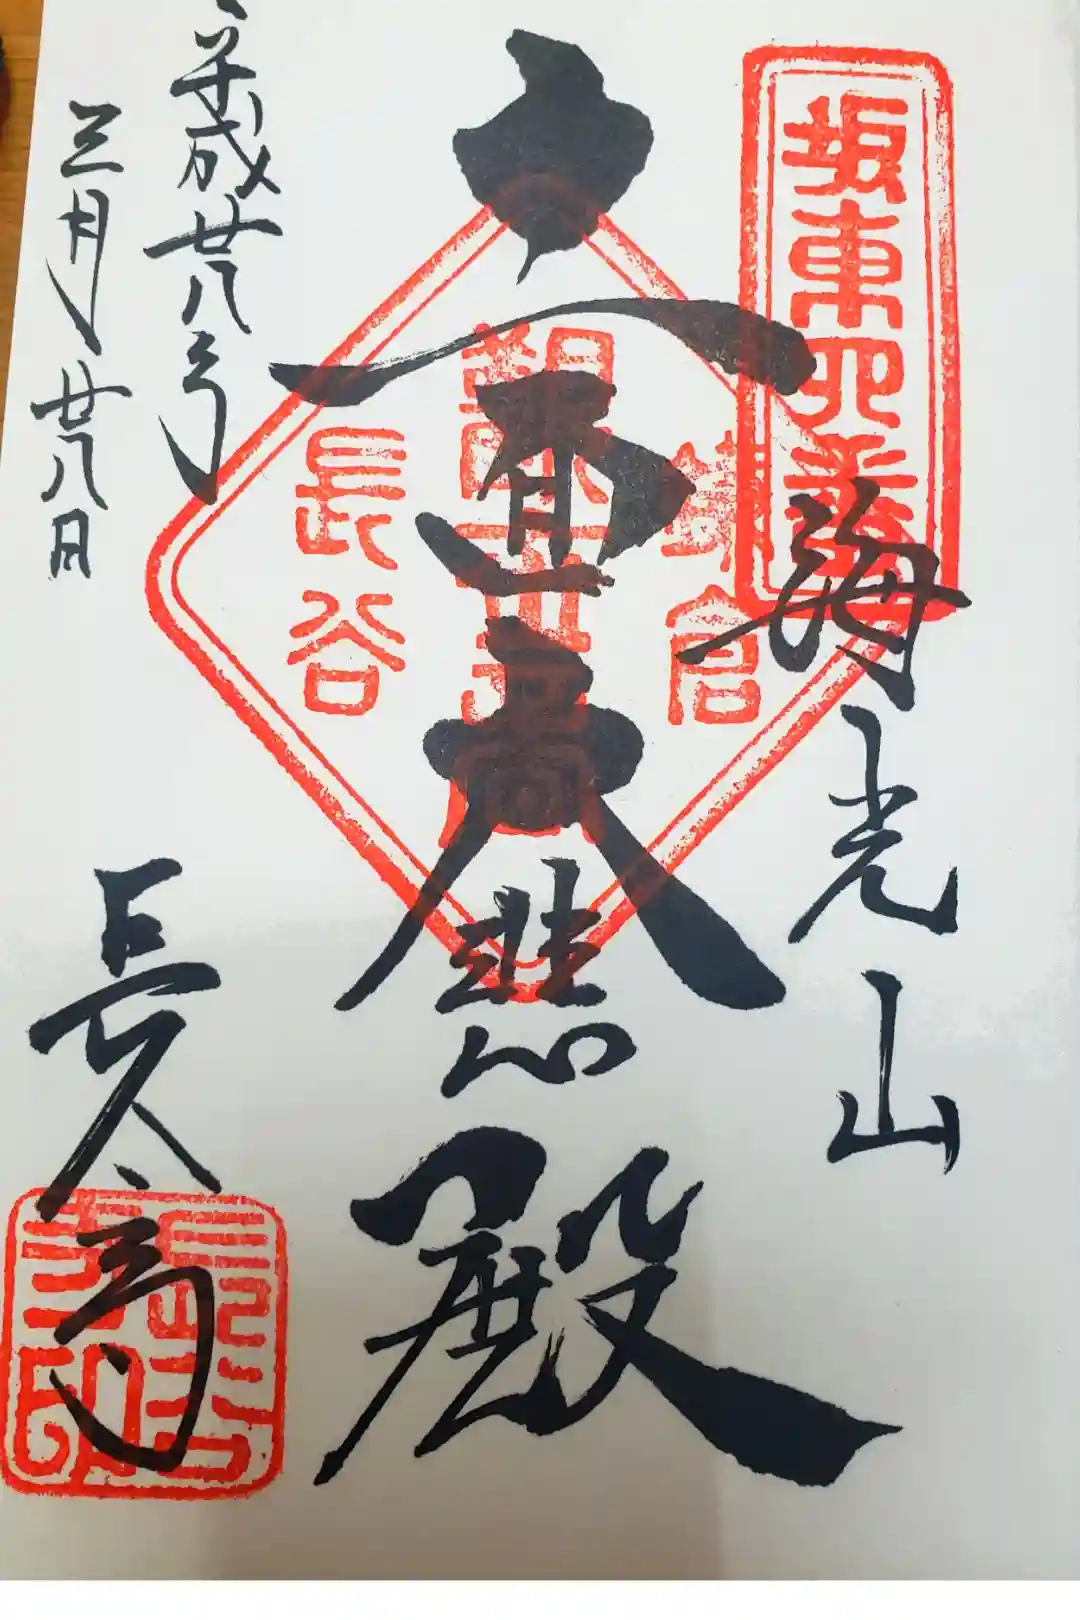 坂東四番
海光山
十一面大悲殿
鎌倉
長谷
平成廿八年
三月廿八日
長谷寺